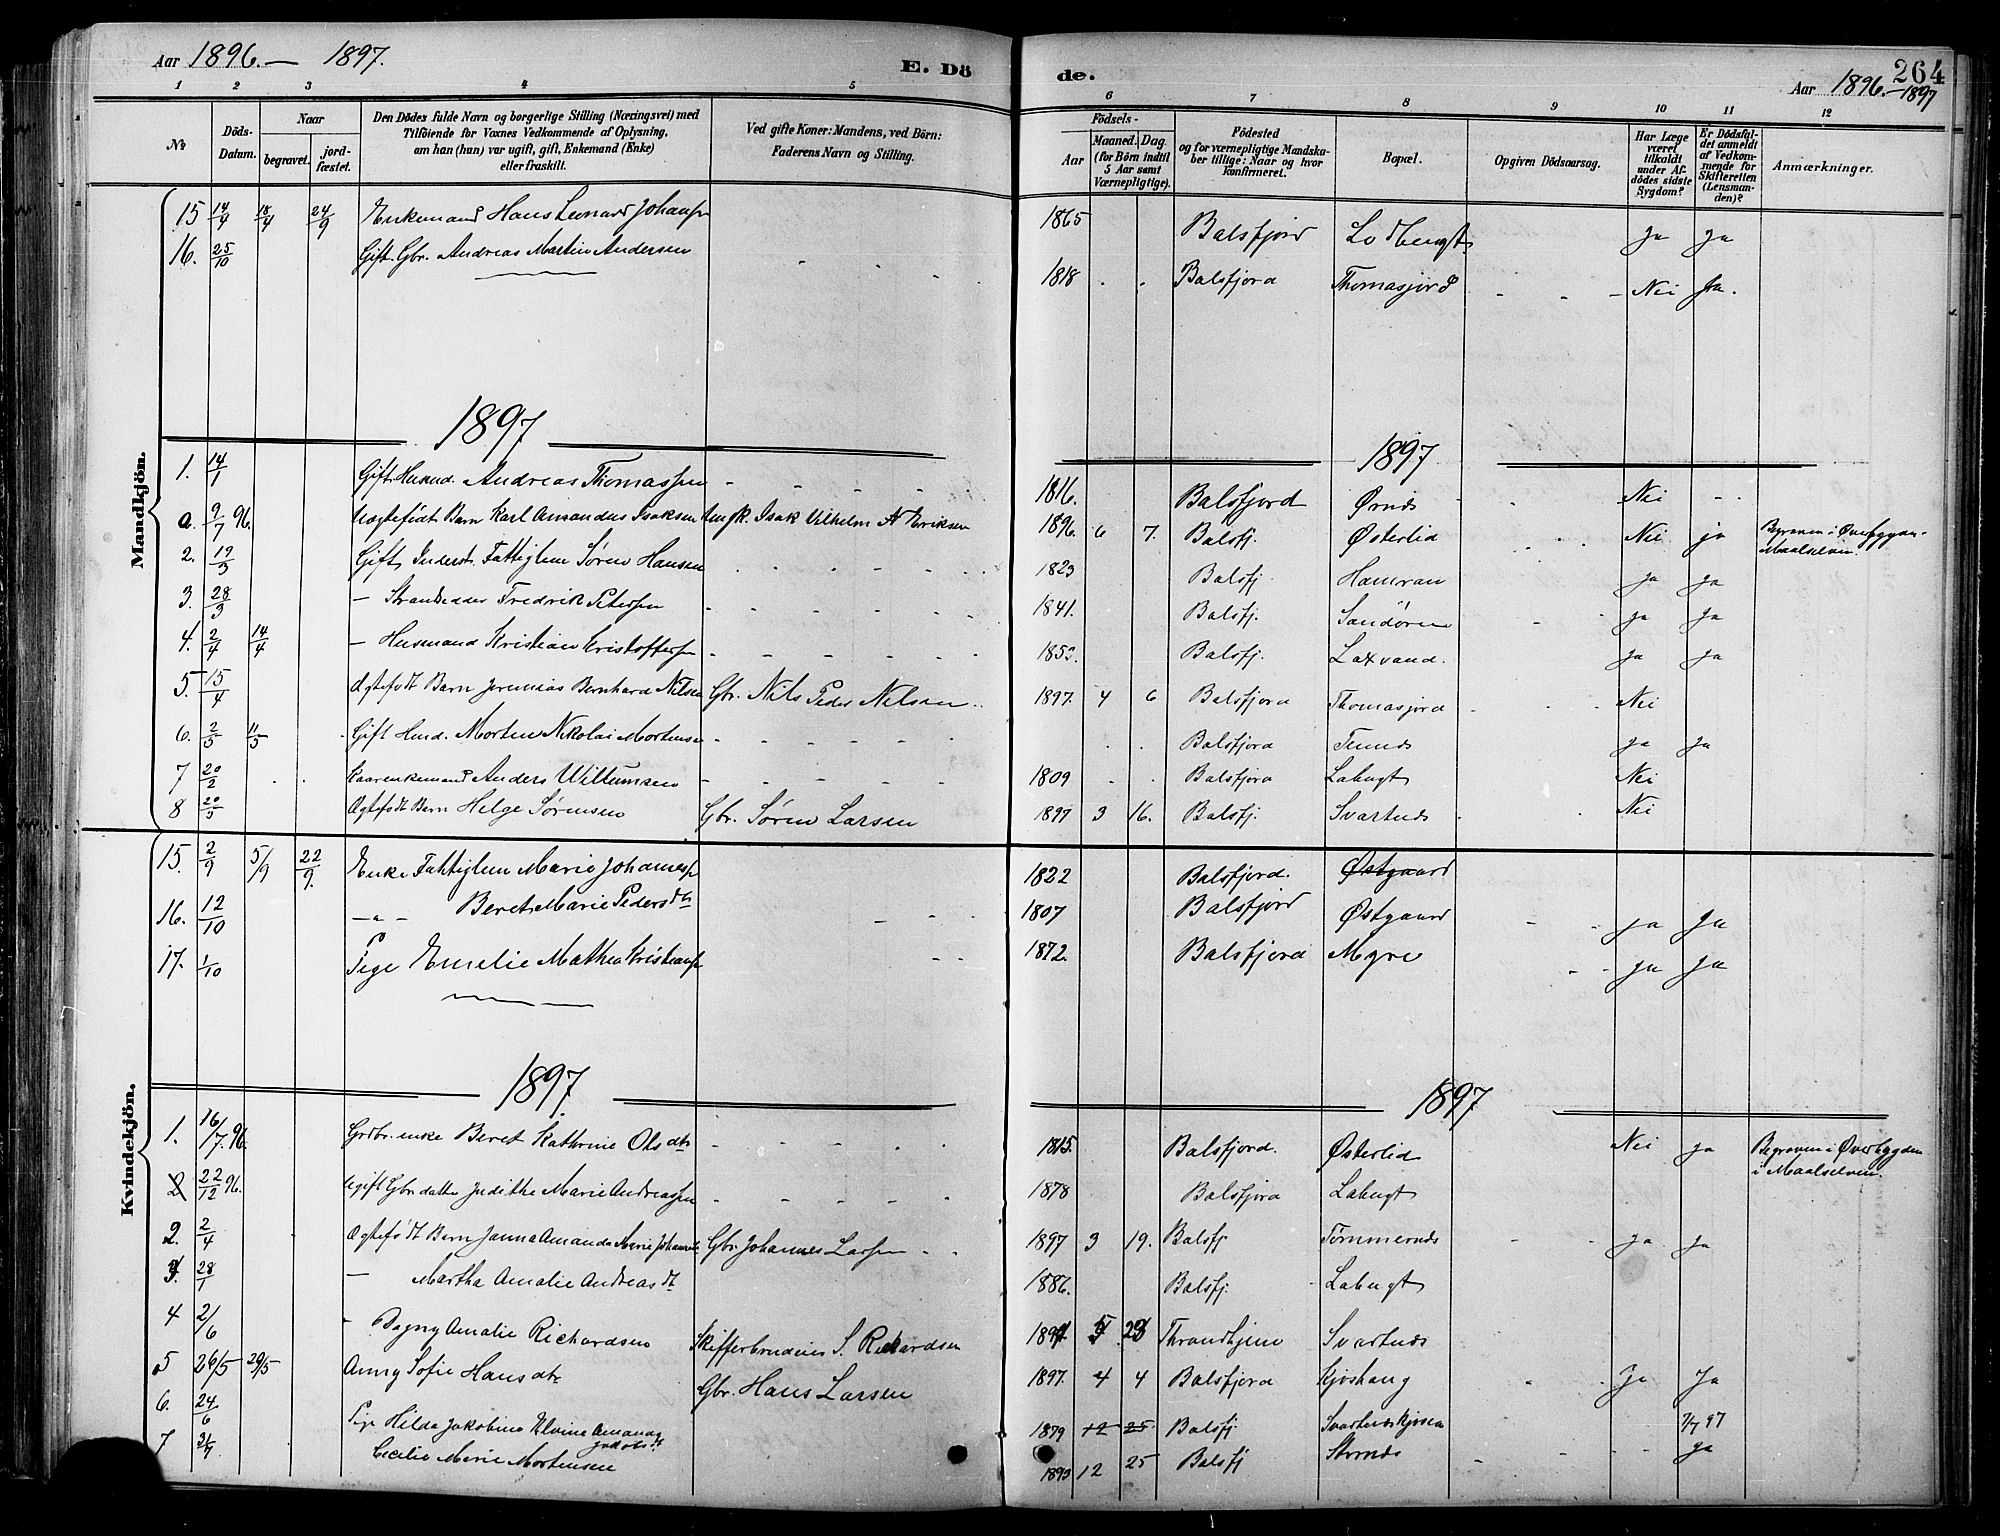 Aar 1896. — 1897.
E. Dö
de.
Aar 1896.–1897
264
1 2 3 4 5
6 7 8 9 10 11 12
№
Döds-Datum.
Naar
begravet.
jord-fæstet.
Den Dödes fulde Navn og borgerlige Stilling (Næringsvei) med
Tilföiende for Voxnes Vedkommende af Oplysning,
om han (hun) var ugift, gift, Enkemand (Enke)
eller fraskilt.
Ved gifte Koner: Mandens, ved Börn:
Faderens Navn og Stilling.
Födsels-
Aar
Maaned. Dag.
(for Börn indtil
5 Aar samt
Værnepligtige).
Födested
og for værnepligtige Mandska-
ber tillige: Naar og hvor
konfirmeret.
Bopæl.
Opgiven Dödsaarsag.
Har Læge
været
tilkaldt
under Af-
dödes sidste
Sygdom?
Er Dödsfal-
det anmeldt
af Vedkom-
mende for
Skifteretten
(Lensman-
den)?
Anmærkninger.
Mandkjön.
15 14/4 18/4 24/9 Enkemand Hans Leonard Johansen 1865 Balsfjord ja ja
16. 25/10 Gift. Gbr. Andreas Martin Andersen 1818 Balsfjord Thomasjord Nei ja.
1897 1897
1. 14/1 Gift. Husmd. Andreas Thomassen 1816. Balsfjord Ørnes Nei
a. 9/7 96. Uægtefödt Barn Karl Amandus Isaksen Ungk. Isak Vilhelm A Eriksen 1896. 6 7. Balsfj. Østerlid Nei ja Begraven i Øverbygden Maalselven.
2. 19/3 Gift Inderst. Fattiglem Søren Hansen 1823 Balsfj. Hamran ja ja
3. 28/3 — Strandsidder Fredrik Petersen 1841. Balsfj. Sandøren ja ja
4. 2/4 14/4 — Husmand Kristian Kristoffersen Balsfj. Laxvand. ja ja
5. 15/4 Ægtefödt Barn Jeremias Bernhard Nilsen Gbr. Nils Peder Nilsen 1897. 4 6 Balsfjord Thomasjord Nei
6. 2/5 11/5 Gift Husmd. Morten Nikolai Mortensen Balsfjord Tennes ja ja
7 20/2 Kaarenkemand Anders Willumsen 1809 Balsfjord Labugt Nei
8 20/5 Ægtefödt Barn Helge Sørensen Gbr. Søren Larsen 1897 3 16. Balsfj. Svartnes Nei
Kvindekjön.
15. 2/9 5/9 22/9. Enke Fattiglem Marie Johannesen 1822 Balsfjord. Østgaard
16. 12/10 — " — Beret Marie Pedersdtr 1807 Balsfjord Østgaard ja ja
17. 1/10 Pige Emelie Mathea Kristiansen 1872. Balsfjord Myre ja ja
1897. 1897
1. 16/7. 96. Grdbr. enke Beret Kathrine Olsdtr 1815. Balsfjord. Østerlid Nei ja Begraven i Øverbygden i Maalselven.
2 22/12 96. Ugift Gbr datter Judithe Marie Andreassen 1878 Balsfjord Labugt
2. 2/4 Ægtefödt Barn Janna Amanda Marie Gbr. Johannes Larsen 1897 3 19. Balsfj. Tømmernes ja ja
3. 28/1 — Martha Amalie Andreasdt 1886. Balsfj. Labugt
4 2/6 Dagny Amalie Richardsen S. Rikardsen 5 23 Throndhjem Svartnes
5 26/5 29/5 Anny Sofie Hansdtr Gbr. Hans Larsen 1897. 4 4 Balsfjord Kjoshaug Ja Ja
6. 24/6 Pige Hilda Jakobine Elvine Amanda Jakobsdt 1879 12 25 Balsfj. Svartneskjosen 7/7 97
7 Cecilie Marie Mortensen 1893 12 25 Balsfj ja